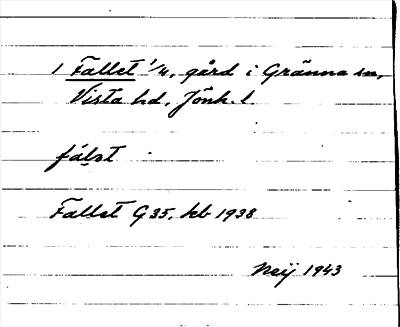 1 Fallet 1/4, gård i Gränna sn,
Vista hd, Jönk. l.
fàlət
Fallet G35, kb 1938
Neij 1943